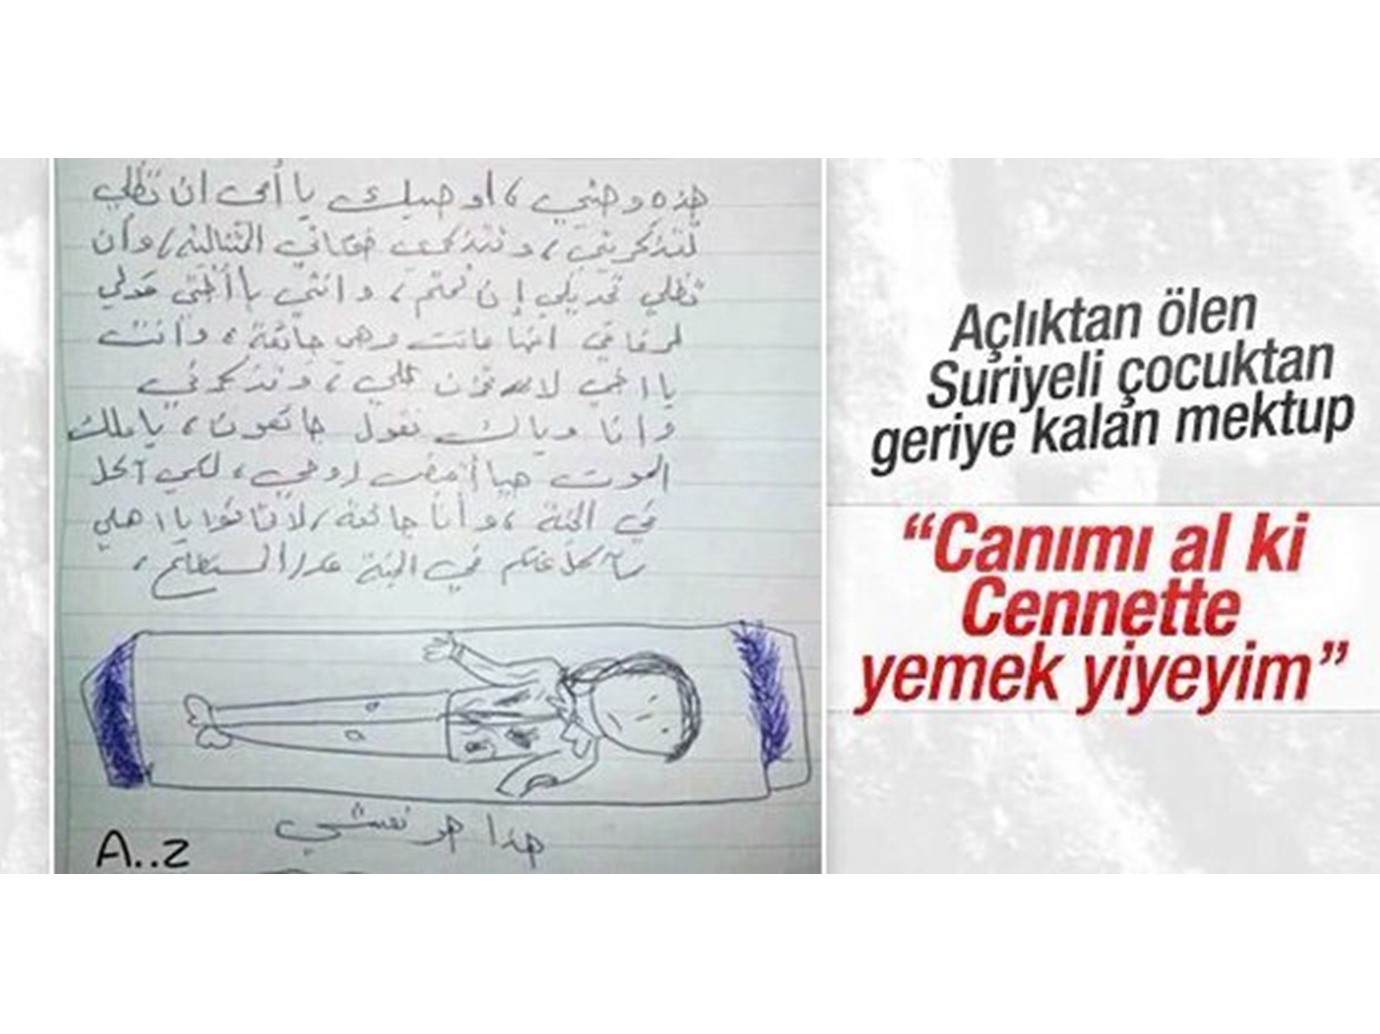 هذه وصيتي، أوصيك يا أمي ان تظلي
تتذكريني، وتتذكري ضحكاتي المتتالية، وأن
تظلي إن نمتم، يا أختي قولي
لرفاقي انها ماتت وهي جائعة، وأنت
يا اخي لا تحزن، وتذكرني
وانا وياك نقول جائعون، يا ملك
الموت هيا أقبض روحي، لكي آكل
في الجنة، وأنا جائعة، لا تخافوا يا اهلي
سآكل عنكم في الجنة قدر المستطاع،
هذا هو نعشي
A..z
Açlıktan ölen
Suriyeli çocuktan
geriye kalan mektup
“Canımı al ki
Cennette
yemek yiyeyim”